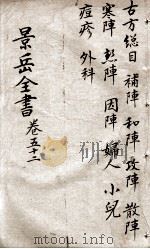 古方总目 補陣 和陣 攻陣 散陣
寒陣 熱陣 因陣 婦人 小兒
痘疹 外科
景岳全書 卷五十二